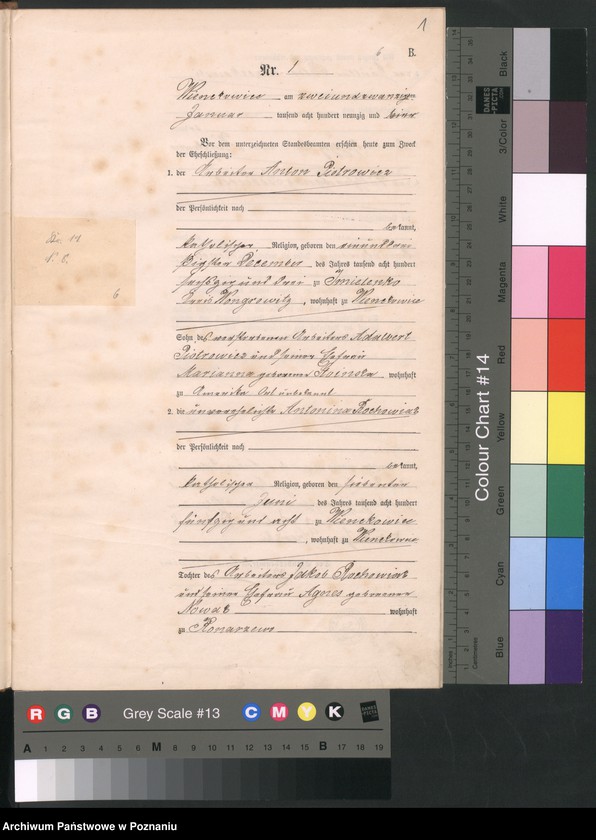 1
6
B.
Nr. 1
Wienckowice am zweiundzwanzig-
Januar tausend acht hundert neunzig und vier
Vor dem unterzeichneten Standesbeamten erschien heute zum Zweck
der Eheschließung:
1. der Arbeiter Anton Piotrowicz
der Persönlichkeit nach
be kannt,
katholischer Religion, geboren den einunddrei
ßigsten December des Jahres tausend acht hundert
sechszig und drei zu Imielenko
Kreis Wongrowitz, wohnhaft zu Wienckowice
Sohn des verstorbenen Arbeiters Adalbert
Piotrowicz und seiner Ehefrau
Marianna geborene wohnhaft
zu Amerika Ort unbekannt
2. die unverehelichte Antonina Rochowiak
der Persönlichkeit nach
be kannt,
katholischer Religion, geboren den siebenten
Juni des Jahres tausend acht hundert
fünfzig und acht zu Wienckowice
, wohnhaft zu Wienckowice
Tochter des Arbeiters Jakob Rochowiak
und seiner Ehefrau Agnes geborener
Nowak wohnhaft
zu Konarzewo
6
Colour Chart #14
Black
3/Color
White
Magenta
Red
Yellow
Green
Cyan
Blue
DANES
PICTA
Inches
Centimetres
R G B Grey Scale #13 C M Y K
A 1 2 3 4 5 6 M 8 9 10 11 12 13 14 15 B 17 18 19
Archiwum Państwowe w Poznaniu